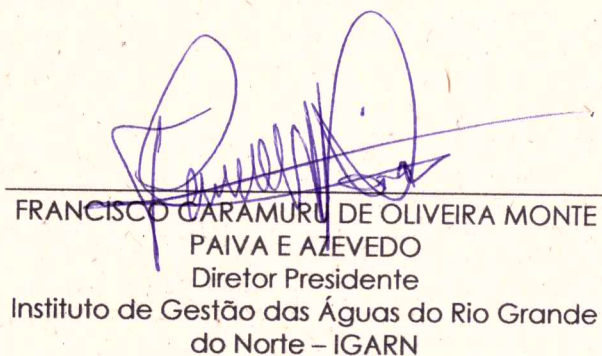 FRANCISCO CARAMURU DE OLIVEIRA MONTE
PAIVA E AZEVEDO
Diretor Presidente
Instituto de Gestão das Águas do Rio Grande
do Norte – IGARN